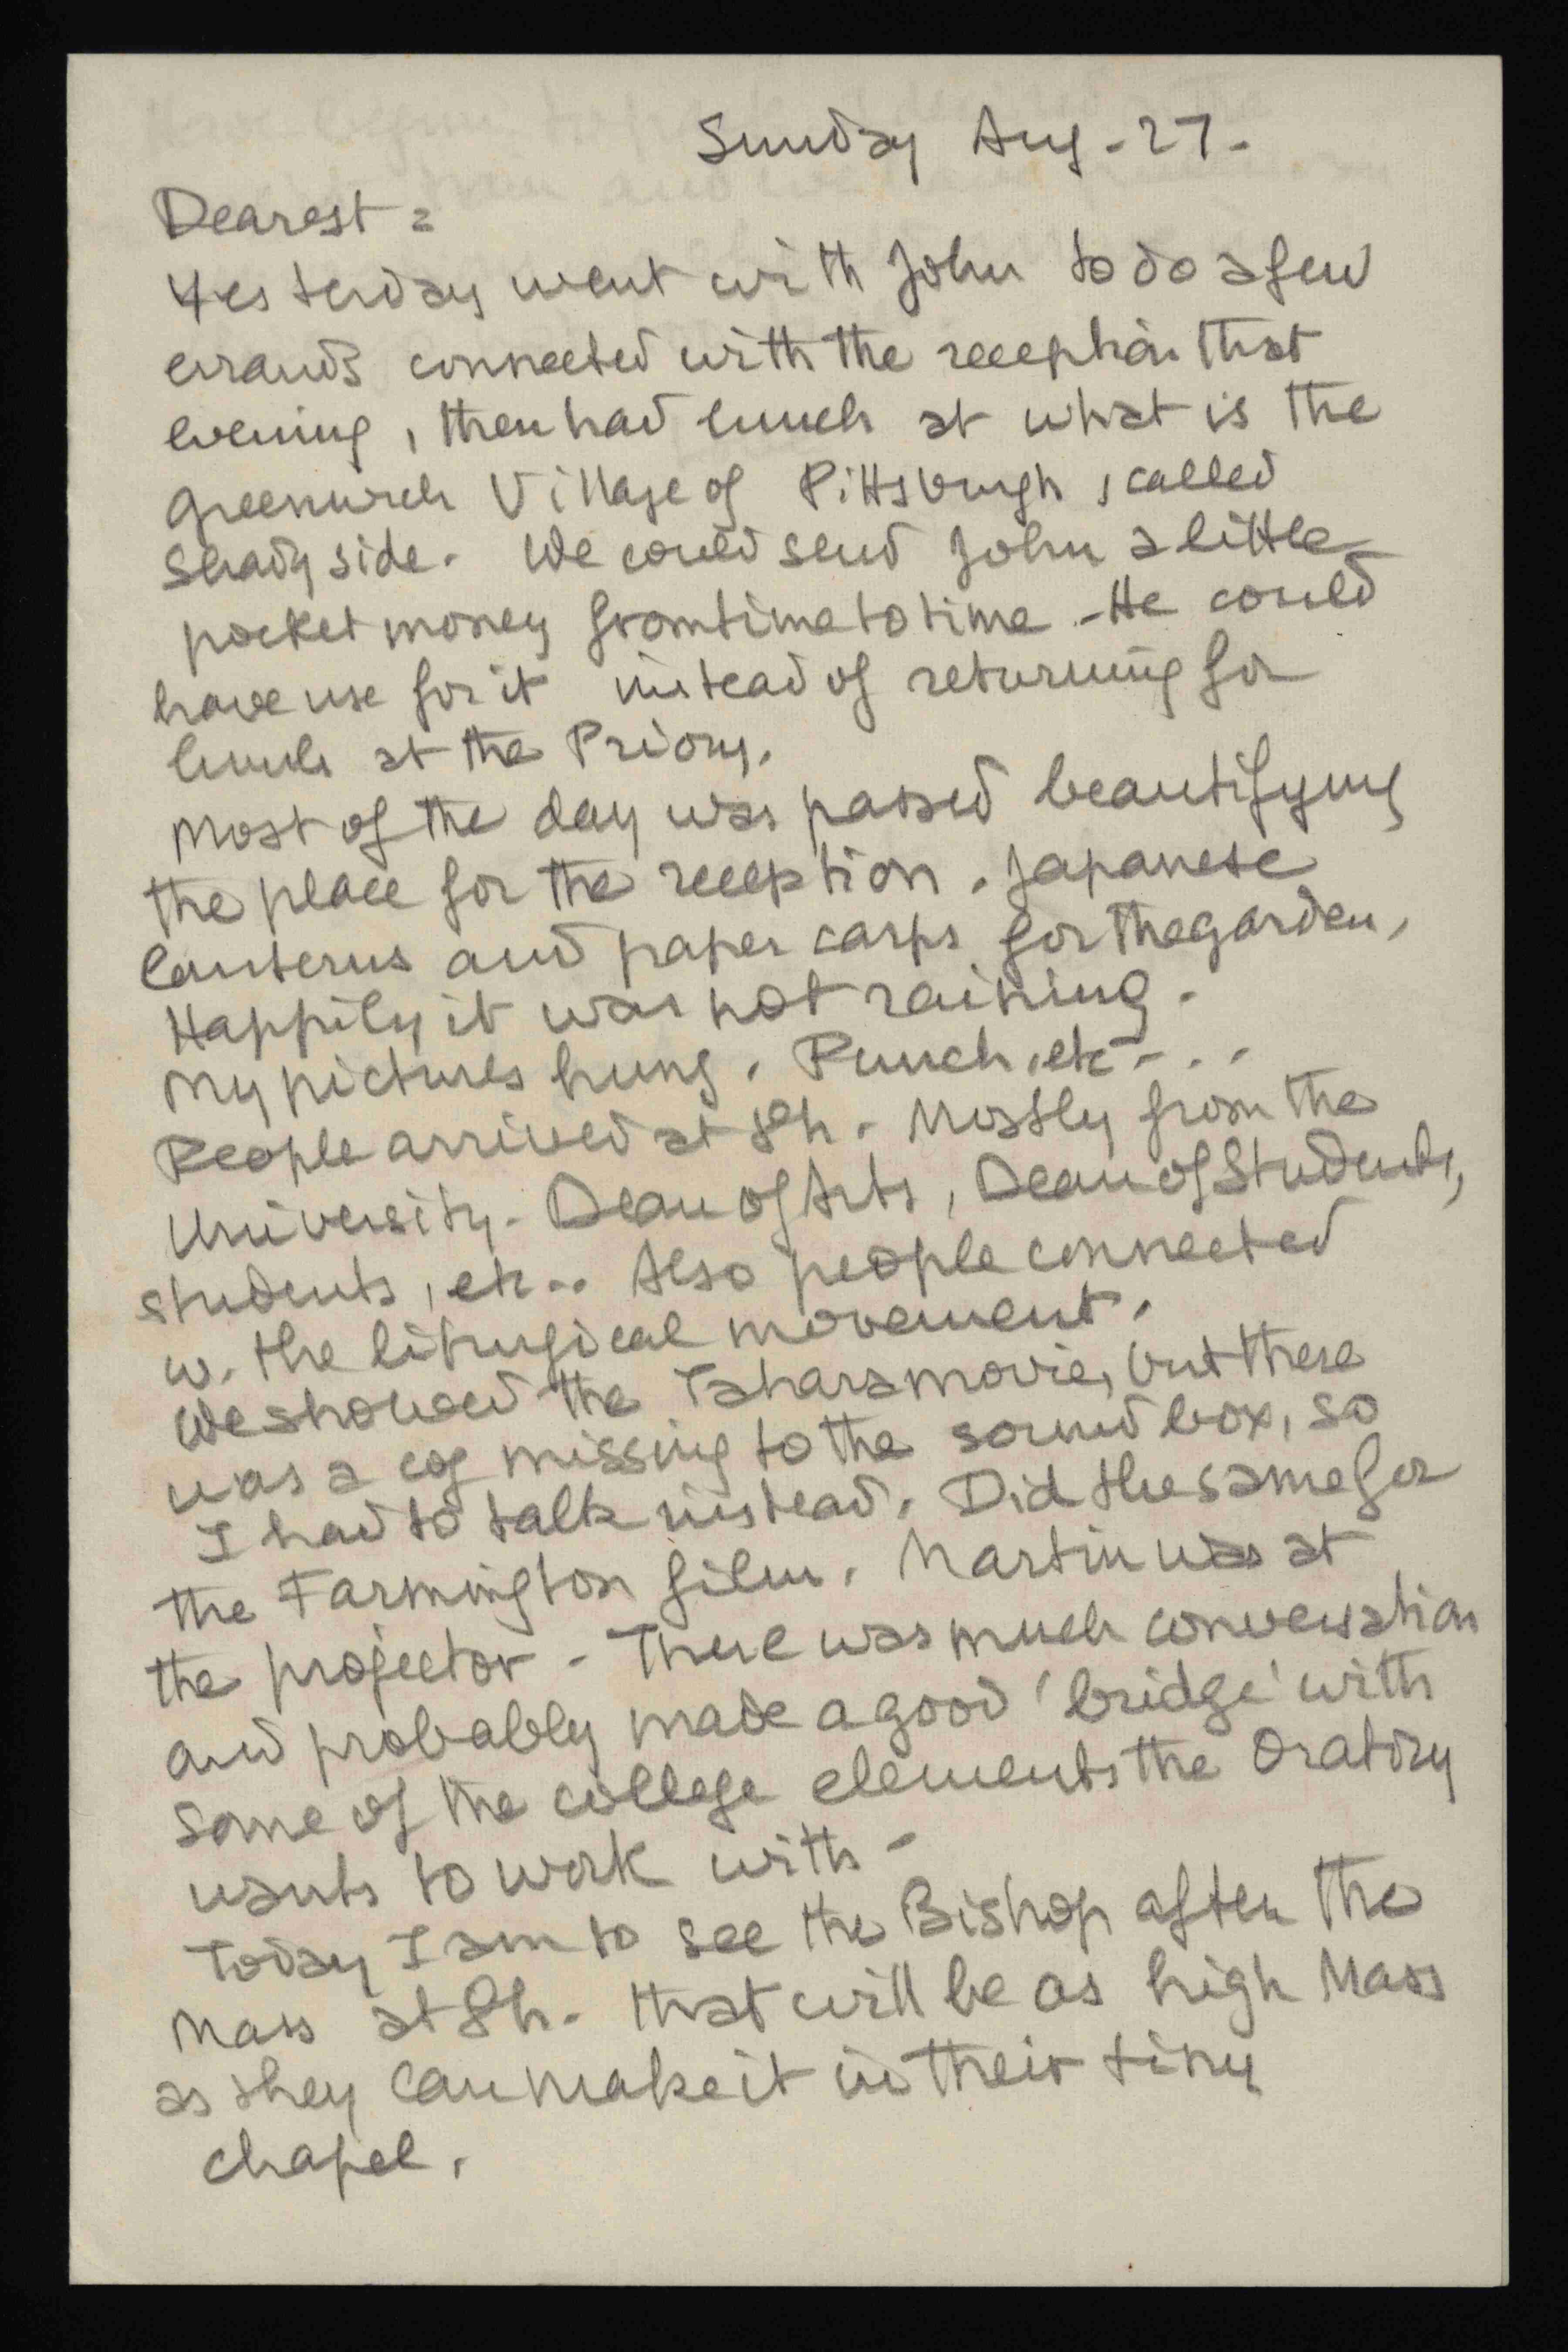 Sunday Aug - 27 -
Dearest =
Yesterday went with John to do a few
errands connected with the reception that
evening, then had lunch at what is the
Greenwich Village of Pittsburgh, called
Shady side. We could send John a little
pocket money from time to time - He could
have use for it instead of returning for
lunch at the Priory.
Most of the day was passed beautifying
the place for the reception. Japanese
lanterns and paper carps for the garden,
Happily it was not raining.
My pictures hung. Punch, etc - . .
People arrived at 8h. Mostly from the
University - Dean of Arts, Dean of Students,
students, etc.. Also people connected
w. the liturgical movement.
We showed the Tahara movie, but there
was a cog missing to the sound box, so
I had to talk instead. Did the same for
the Farmington film. Martin was at
the projector - There was much conversation
and probably made a good 'bridge' with
some of the college elements the Oratory
wants to work with -
Today I am to see the Bishop after the
Mass at 8h. That will be as high Mass
as they can make it in their tiny
chapel.